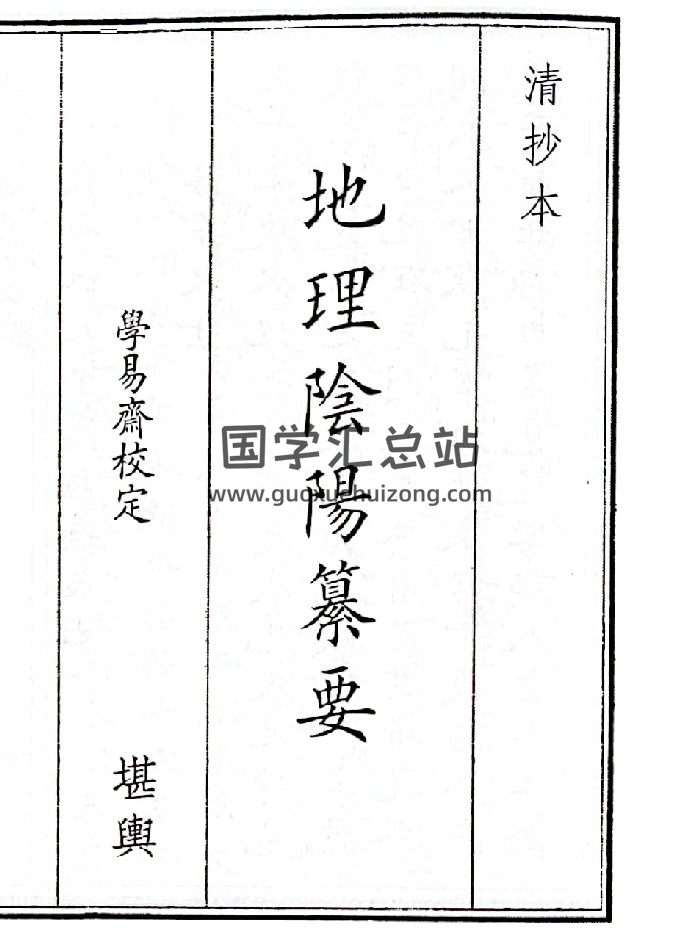 清抄本
地理陰陽纂要
學易齋校定
堪輿
国学汇总站
www.guoxuehuizong.com